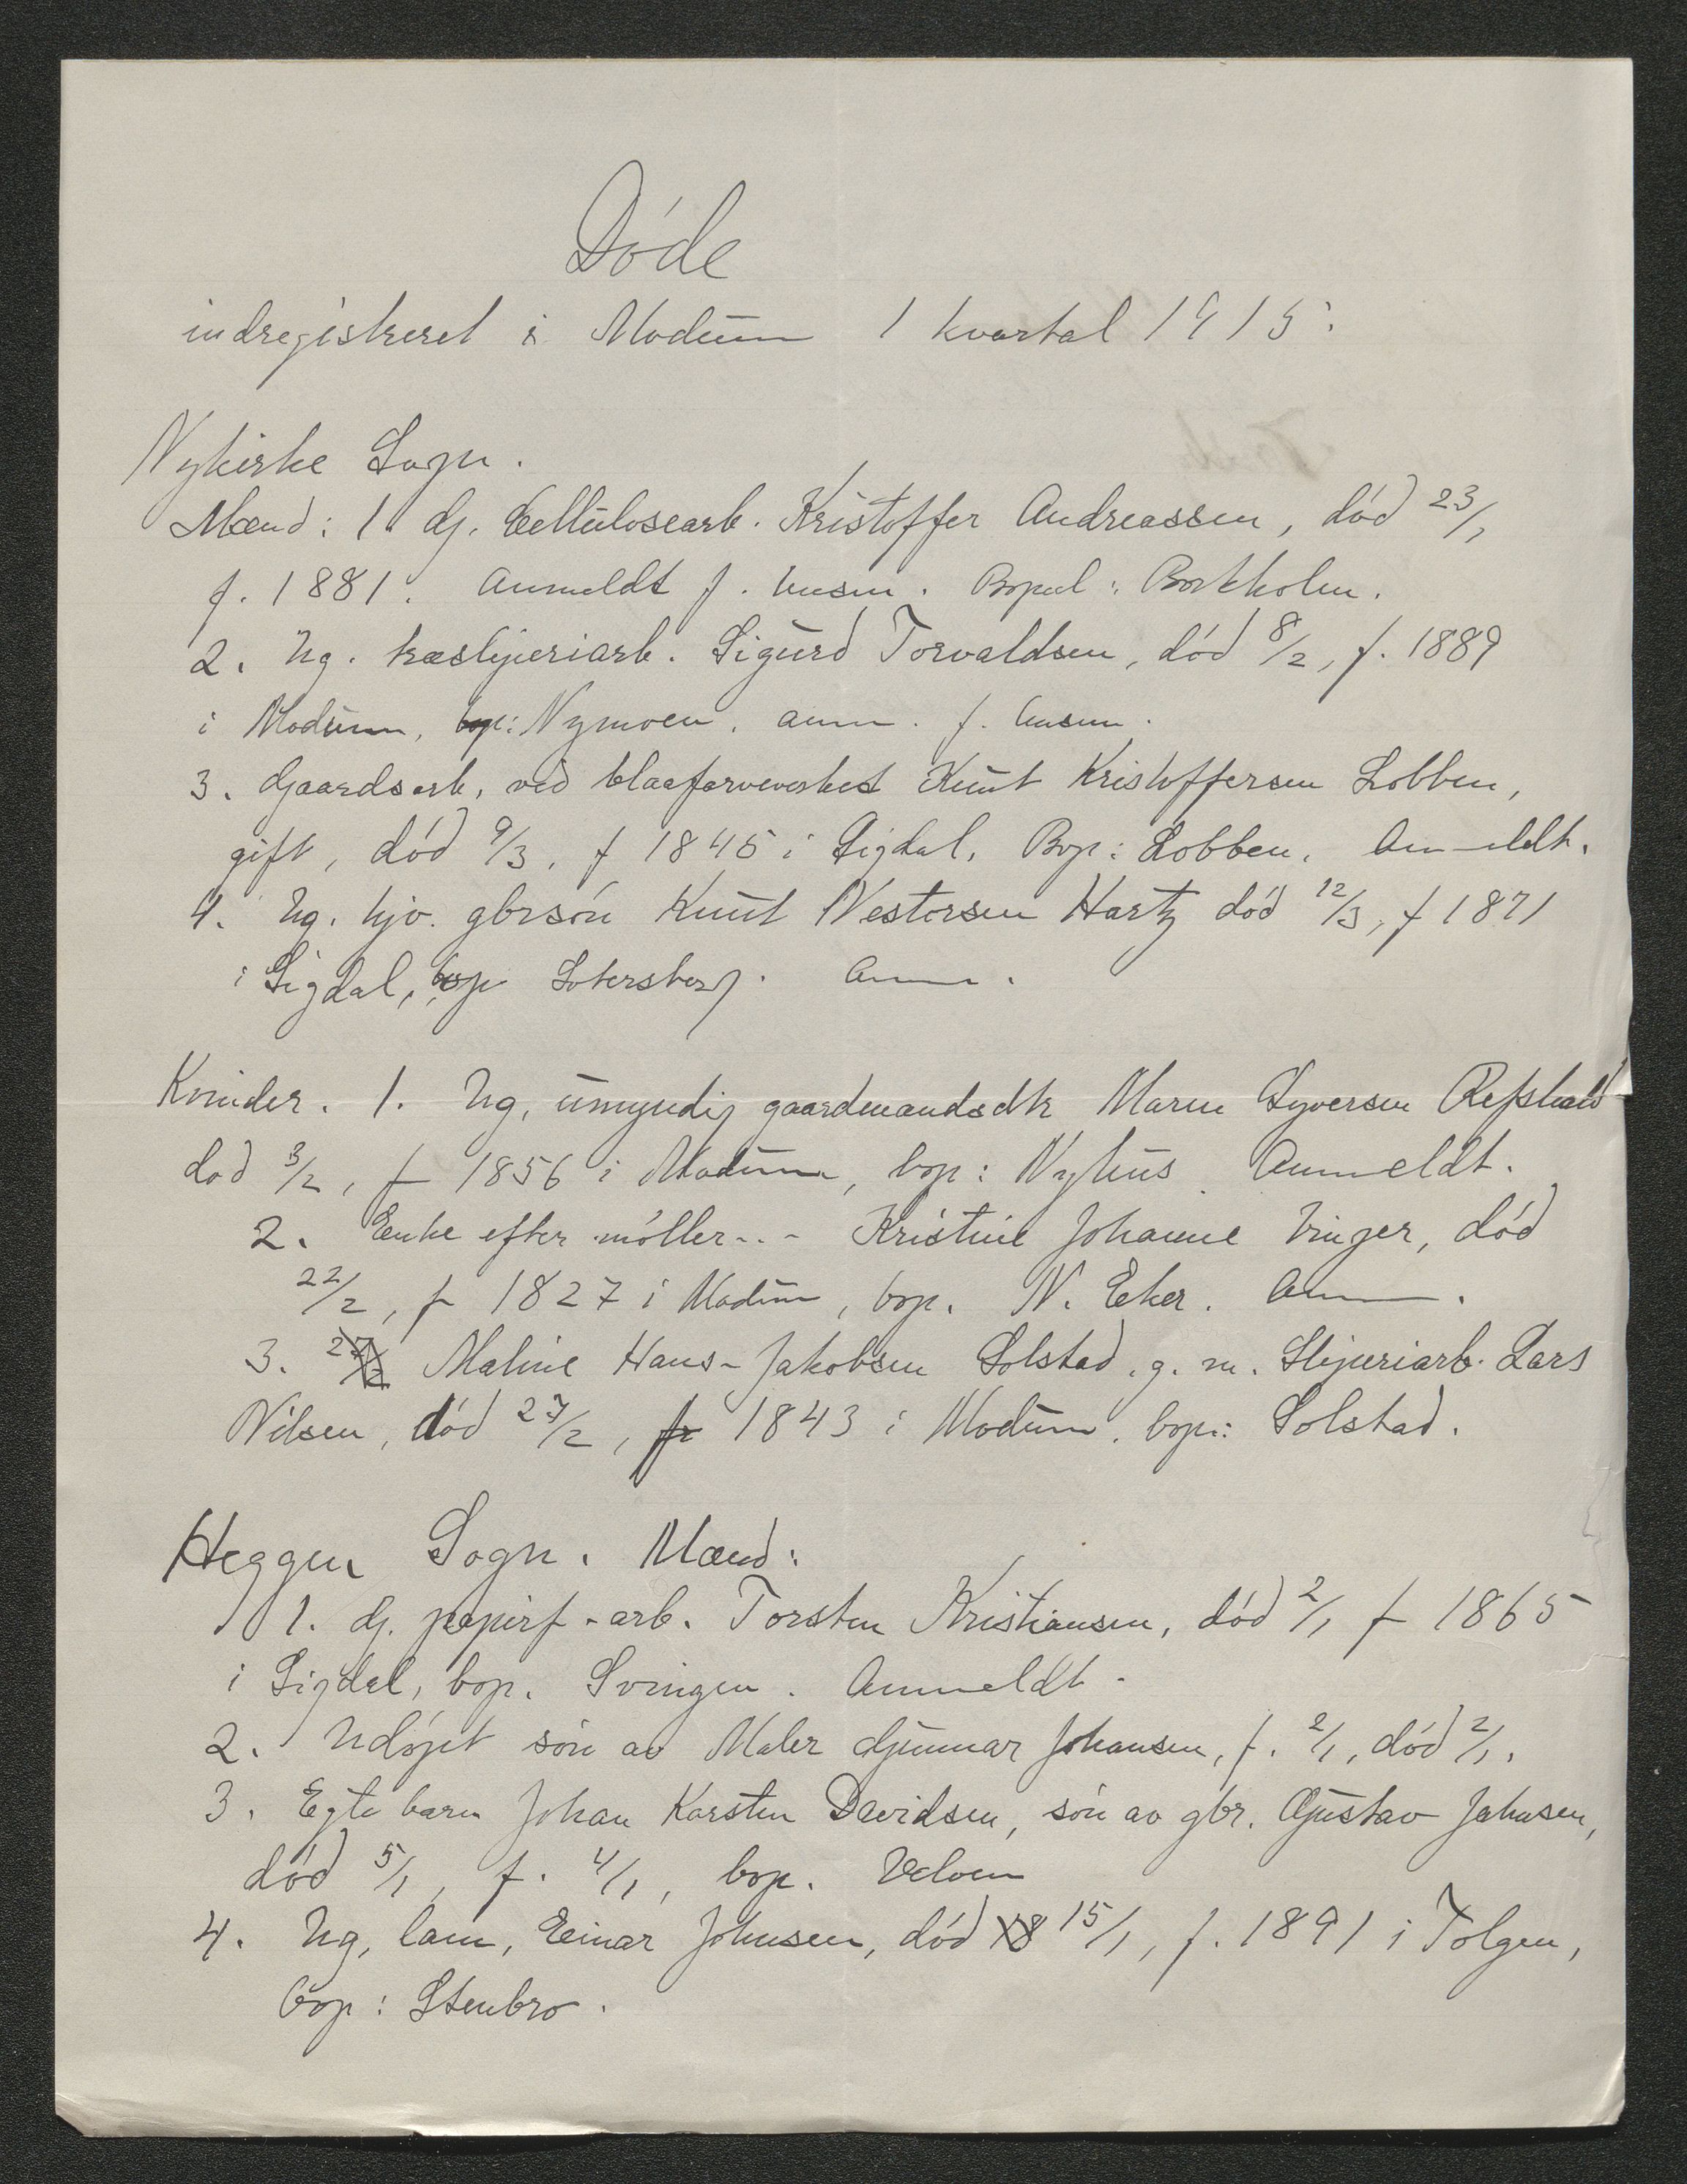 Døde
indregistreret i Modum 1 kvartal 1915:
Nykirke Sogn.
Mænd: 1. Gj. Cellulosearb. Kristoffer Andreassen, død 23/1
f. 1881. Anmeldt f. Bopæl: Borkholm.
2. Ug. træsliperiarb. Sigurd Torvaldsen, død 8/2, f. 1889
i Modum, bop: Nymoen. anm. f.
3. Gaardsarb. ved blaafarveverket Knut Kristoffersen Lobben,
gift, død 9/3, f 1845 i Sigdal. Bop: Lobben. Anmeldt.
4. Ug. hjv. gbrsøn Knut Nestorsen Hartz død 12/3, f 1871
i Sigdal, bop Lotersberg. Anm.
Kvinder. 1. Ug. umyndig gaardmandsdtr Maren Syversen Refshald
død 3/2, f 1856 i Modum, bop: Nyhus. Anmeldt.
2. Enke efter møller --- Kristine Johanne Vinger, død
22/2, f 1827 i Modum, bop. N. Eker. Anm.
3. Maline Hans-Jakobsen Solstad. g. m. Sliperiarb. Lars
Nilsen, død 27/2, f 1843 i Modum. bop: Solstad.
Heggen Sogn. Mænd:
1. Gj. papirf-arb. Torsten Kristiansen, død 2/1 f 1865
i Sigdal, bop. Svingen. Anmeldt.
2. Udøpt søn av Maler Gunnar Johansen, f. 2/1, død 2/1.
3. Egte barn Johan Karsten Davidsen, søn av gbr. Gustav Johnsen,
død 5/1, f. 4/1, bop.
4. Ug, Einar Johnsen, død 15/1, f. 1891 i Tolgen,
bop: Stenbro.